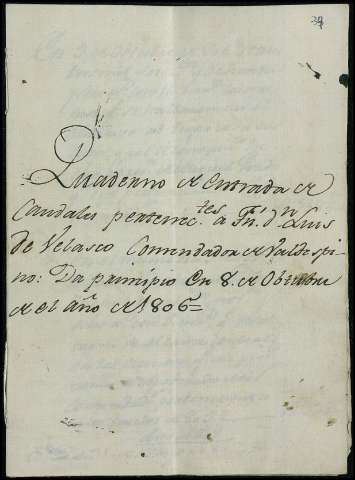 39
Quaderno de Entrada de
Caudales pertenec.tes a Fr. dn Luis
de Velasco Comendador de Valdespi-
no: Da principio En 8. de Obtubre
de el año de 1806=